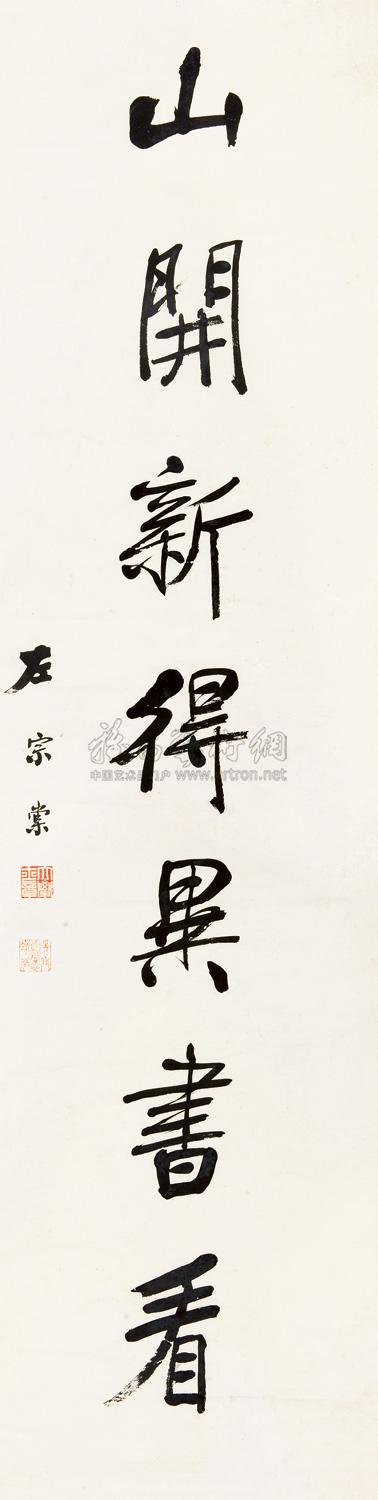 山開新得異書看
左宗棠
雅昌藝術網
中国艺术品门户 www.artron.net